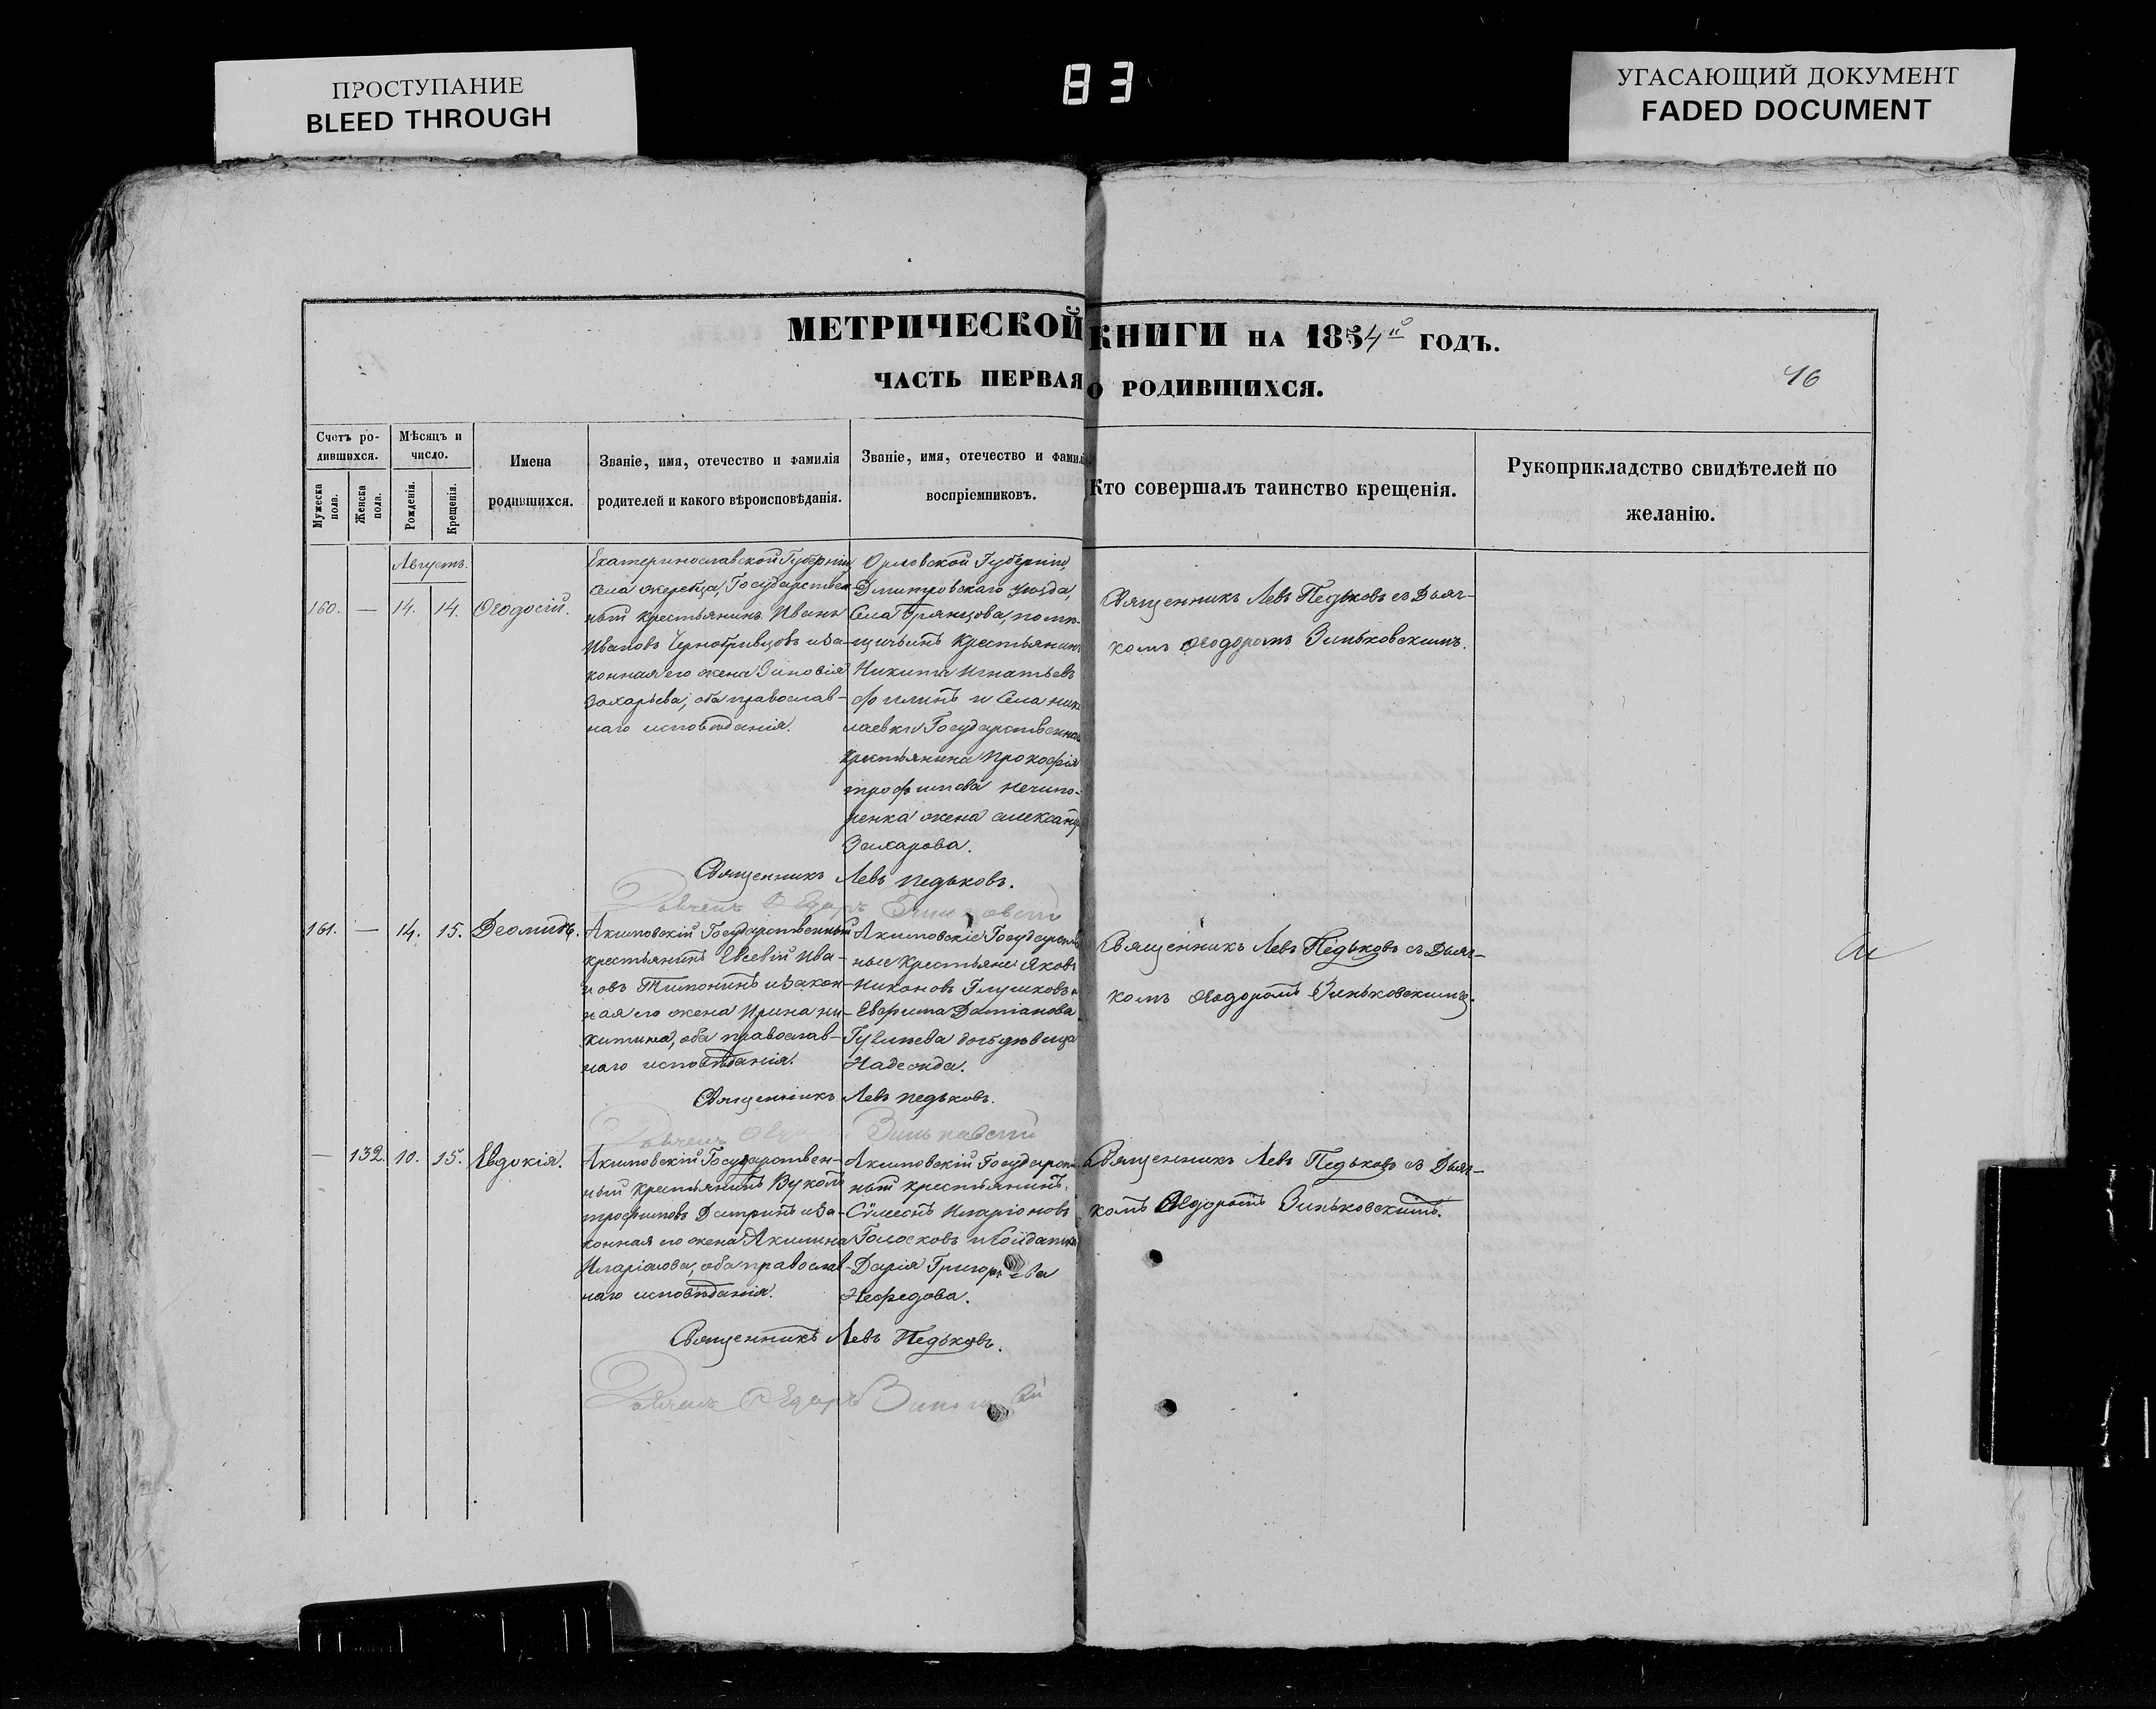 ПРОСТУПАНИЕ
BLEED THROUGH
83
УГАСАЮЩИЙ ДОКУМЕНТ
FADED DOCUMENT
МЕТРИЧЕСКОЙ КНИГИ НА 1854й ГОДЪ.
ЧАСТЬ ПЕРВАЯ О РОДИВШИХСЯ.
46
Счетъ ро-
дившихся.
Мужеска
пола.
Женска
пола.
Мѣсяцъ и
число.
Рожденія.
Крещенія.
Имена
родившихся.
Званіе, имя, отечество и фамилія
родителей и какого вѣроисповѣданія.
Званіе, имя, отечество и фамил
воспріемниковъ.
Кто совершалъ таинство крещенія.
Рукоприкладство свидѣтелей по
желанію.
Августъ.
160. — 14. 14. Ѳеодосій.
Екатеринославской Губерніи
села Жеребца, Государствен
ный крестьянинъ Иванъ
Ивановъ Чернобривцовъ и за-
конная его жена Зиновія
Захарьева, оба православ-
наго исповѣданія.
Орловской Губерніи,
Дмитровскаго уѣзда,
Села Брянцова, помѣ-
щичьинъ Крестьянинъ
Никита Игнатьевъ
Филинъ и Села Нико
лаевки Государственна
Крестьянина Прокофія
Трофимова Нечипо-
ренка жена Александ
Захарова.
Священникъ Левъ Педьковъ съ Дьяч-
комъ Ѳеодоромъ Зиньковскимъ.
Священникъ Левъ Педьковъ.
Дьячекъ Ѳедоръ
161. — 14. 15. Деомидъ.
Акимовскій Государственный
крестьянинъ Евсевій Ива-
новъ Тимонинъ и закон-
ная его жена Ирина Ни-
китина, оба православ-
наго исповѣданія.
Акимовскіе Государств
ные Крестьяне Яковъ
Никоновъ Глушковъ и
Евфима Даміанова
дочь дѣвица
Надежда.
Священникъ Левъ Педьковъ съ Дьяч-
комъ Ѳеодоромъ Зиньковскимъ.
Священникъ Левъ Педьковъ.
Дьячекъ Зиньковскій
— 132. 10. 15. Евдокія.
Акимовскій Государствен-
ный Крестьянинъ Вуколъ
Трофимовъ и за-
конная его жена Акилина
Иларіонова, оба православ-
наго исповѣданія.
Акимовскій Государств
ный крестьянинъ,
Сѵмеонъ Иларіоновъ
Голосковъ и Солдатка
Дарія Григорьева
Нефедова.
Священникъ Левъ Педьковъ съ Дьяч-
комъ Ѳеодоромъ Зиньковскимъ.
Священникъ Левъ Педьковъ.
Дьячекъ Ѳедоръ